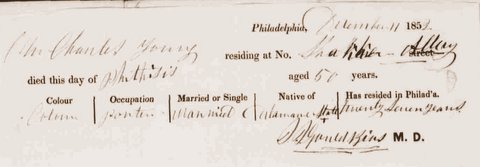 Philadelphia, December 11 1853.
Mr Charles Young
residing at No. Alley
died this day of phthisis aged 50 years.
Colour Occupation Married or Single Native of Has resided in Philad'a.
Porter Married State twenty Seven years
M. D.